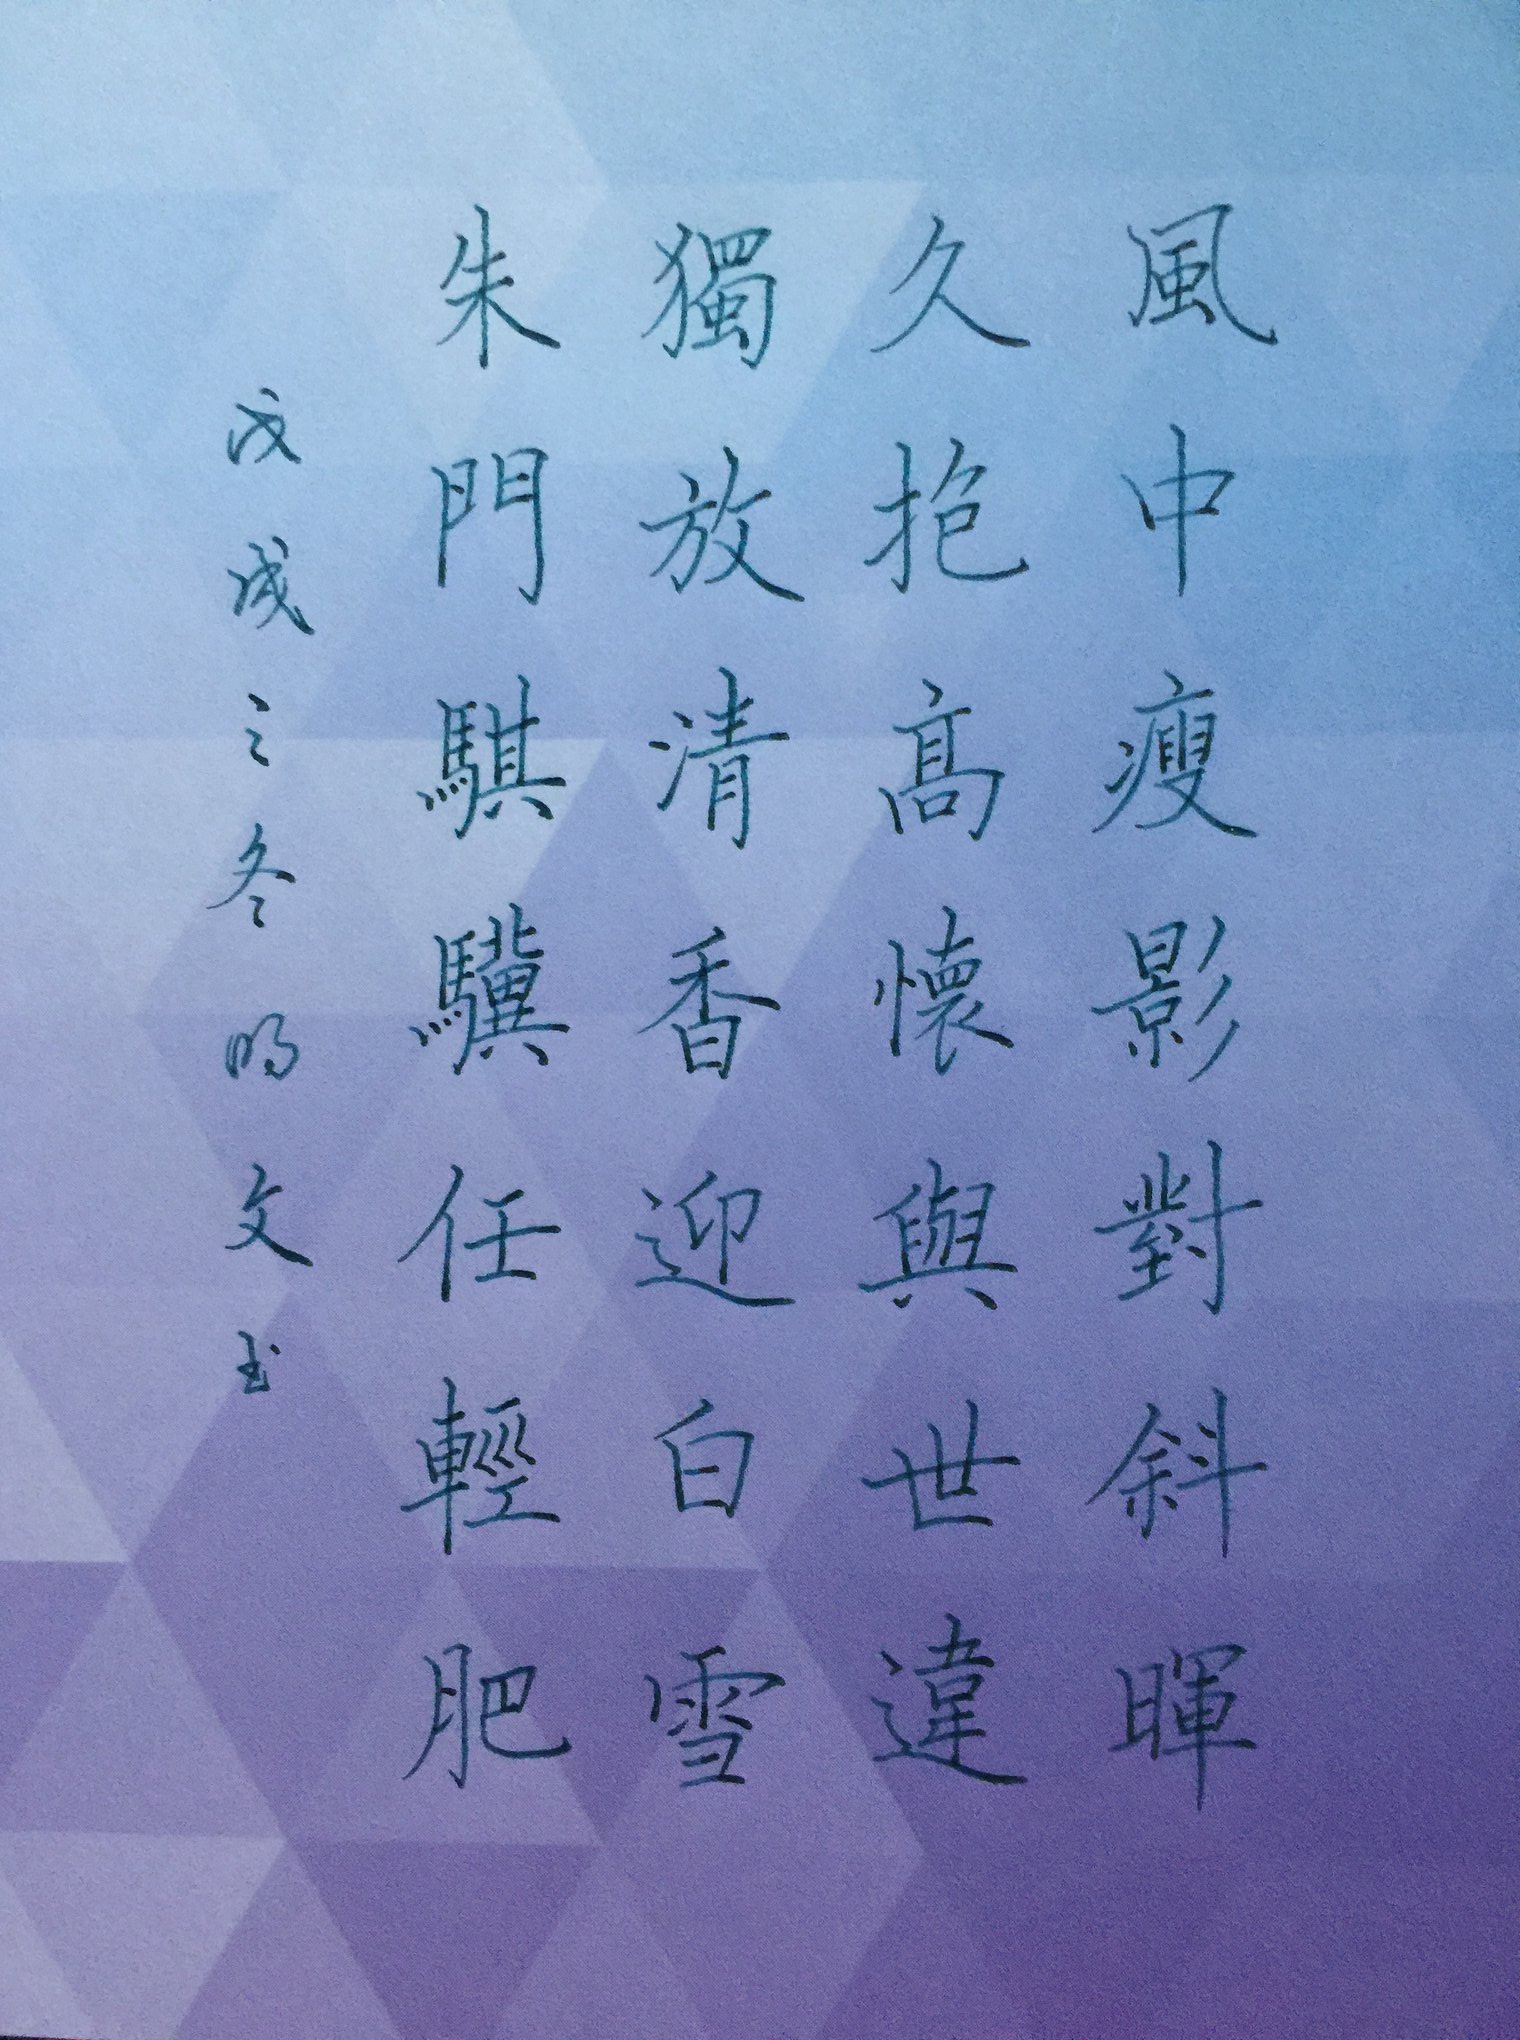 風中瘦影對斜暉
久抱高懷與世違
獨放清香迎白雪
朱門騏驥任輕肥
戊戌之冬明文书